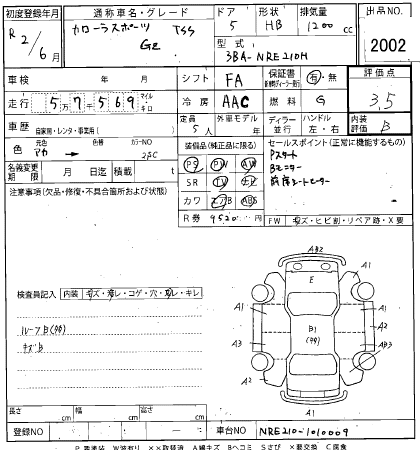 初度登録年月 通称車名・グレード ドア 形状 排気量 出品NO.
R 2/6月 カローラスポーツ TSS 5 HB 1200 cc 2002
GZ 型式 3BA-NRE210H
車検 年 月 シフト FA 保証書 有・無 評価点
走行 5万7千569 マイル キロ 冷房 AAC 燃料 G 3,5
車歴 自家用・レンタ・事業用( ) 定員 5人 外車モデル 年 ディーラー 並行 ハンドル 左・右 内装評価 B
色 元色 アカ 色替 カラーNO. 2BC 装備品(純正品に限る) セールスポイント(正常に機能するもの)
名義変更期限 月 日迄 積載 t PS PW AW Pスタート
注意事項(欠品・修復・不具合箇所および状態) SR TV Bモニター
カワ エアB ABS 前席シートヒーター
R券 9520 円 FW キズ・ヒビ割・リペア跡・X要
検査員記入 内装 キズ・汚レ・コゲ・穴・切レ・キレ
ルーフB(yy)
キズB
AB2
A1 A1
E
A1 A1
B1 A2
A2 AB3
A2
A1
長さ cm 幅 cm 高さ cm
登録NO 車台NO NRE210-1010009
P要塗装 W波有り XX取替済 A線キズ Bヘコミ Sさび X要交換 C腐食